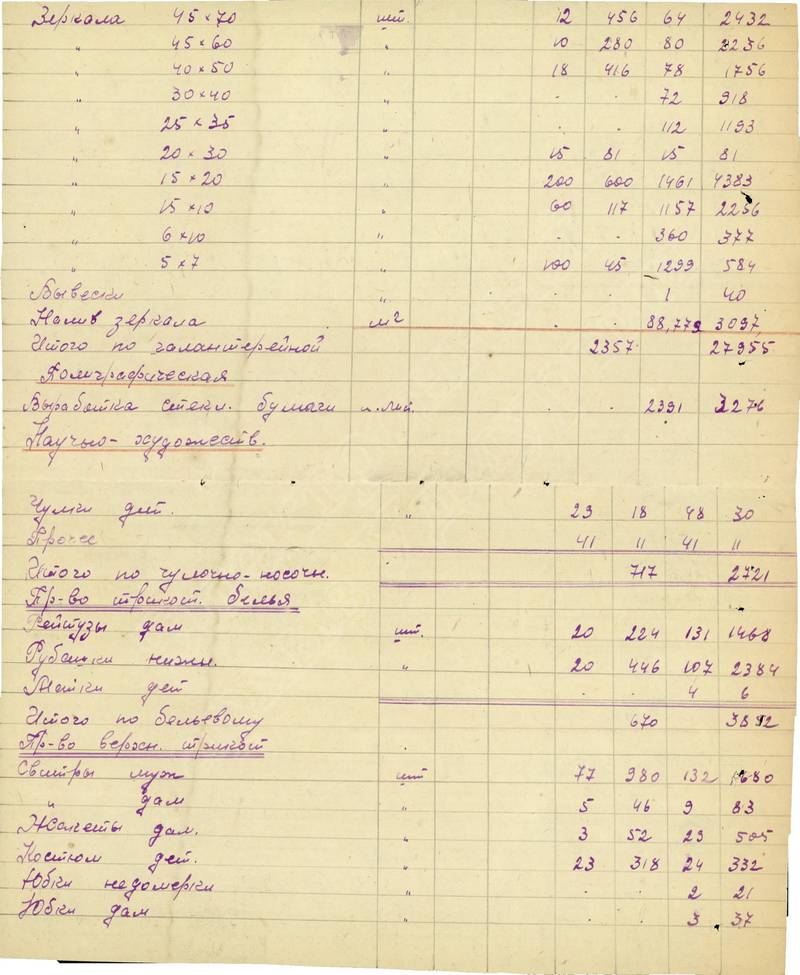 Зеркала 45×70 шт. 12 456 64 2432
" 45×60 " 10 280 80 2236
" 40×50 " 18 416 78 1756
" 30×40 " . . 72 918
" 25×35 " . . 112 1193
" 20×30 " 15 81 15 81
" 15×20 " 200 600 1461 4383
" 15×10 " 60 117 1157 2256
" 6×10 " . . 360 377
" 5×7 " 100 45 1299 584
Вывески " . . 1 40
Налив зеркала м² . . 88,779 3097
Итого по галантерейной 2357 27955
Полиграфическая
Выработка стекл. бумаги п. лист. . . 2391 3276
Научно-художеств.
Чулки дет. " 23 18 48 30
Прочее 41 11 41 11
Итого по чулочно-носочн. 717 2721
Пр-во трикот. белья
Рейтузы дам шт. 20 224 131 1468
Рубашки нижн. " 20 446 107 2384
Майки дет . . 4 6
Итого по бельевому 670 3892
Пр-во верхн. трикот
Свитры муж шт 77 980 132 1680
" дам " 5 46 9 83
Жакеты дам. " 3 52 29 505
Костюм дет. " 23 318 24 332
Юбки недомерки " . . 2 21
Юбки дам " . . 3 37